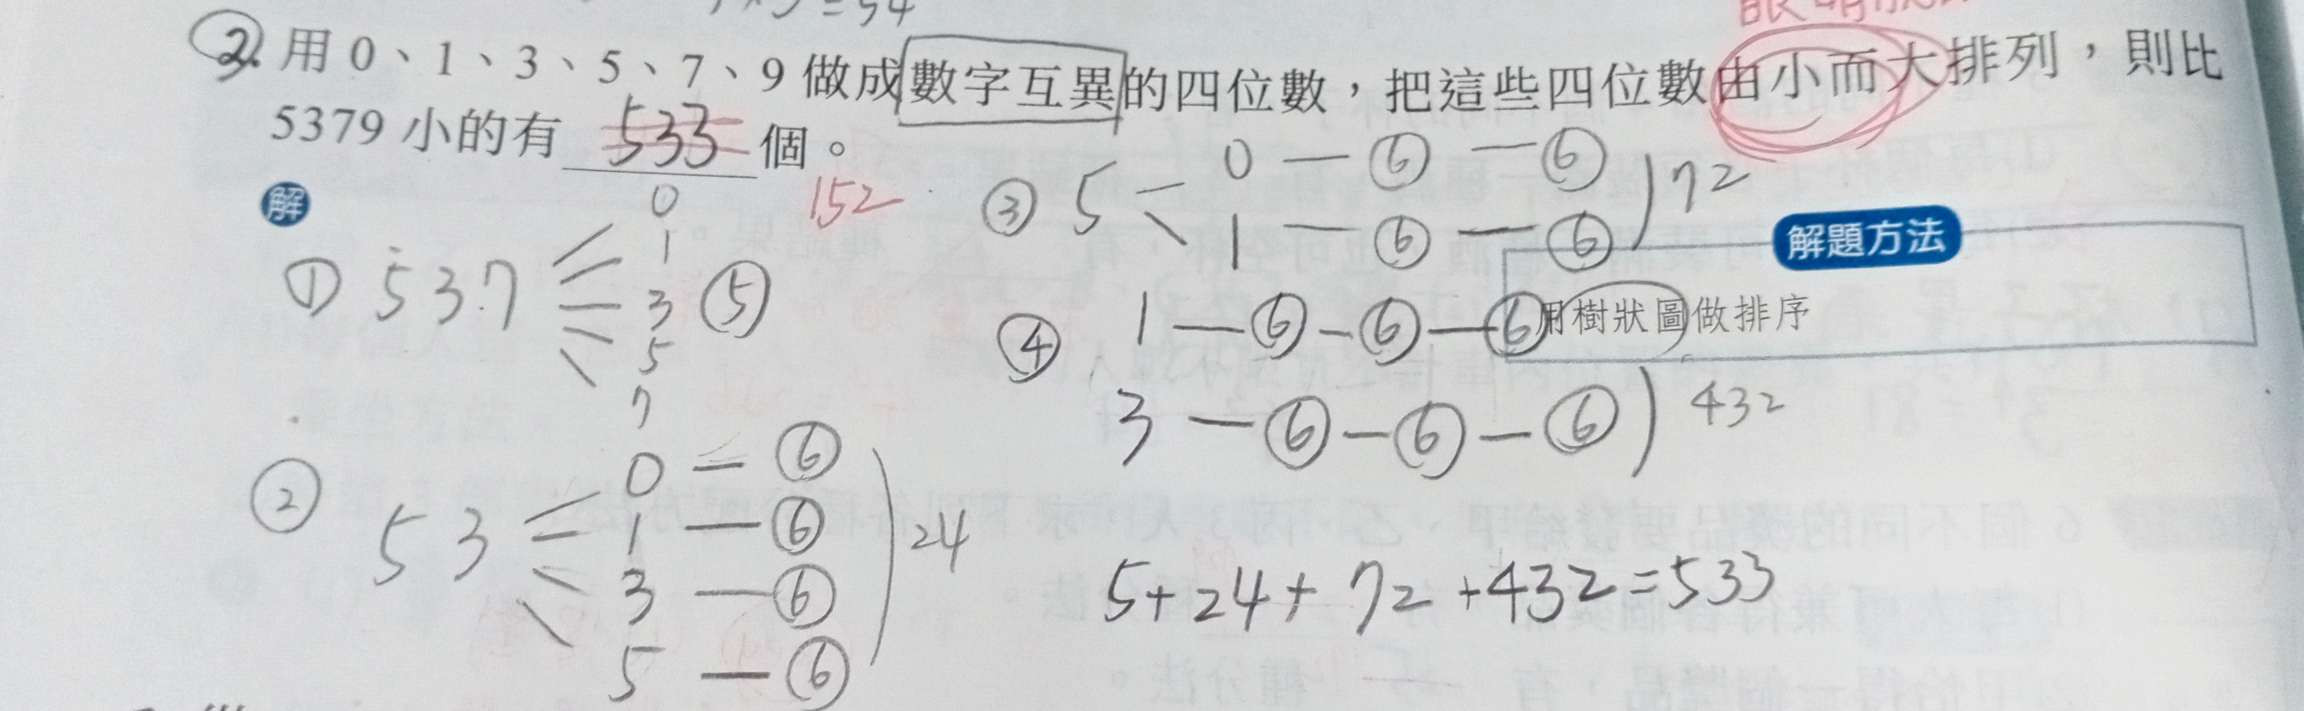 2. 用 0、1、3、5、7、9 做成數字互異的四位數，把這些四位數由小而大排列，則比
5379 小的有 533 個。
152
解
① 537
0
1
3 ⑤
5
7
② 53
0 — ⑥
1 — ⑥
3 — ⑥
5 — ⑥
24
③ 5
0 — ⑥ — ⑥
1 — ⑥ — ⑥
72
④ 1 — ⑥ — ⑥ — ⑥
3 — ⑥ — ⑥ — ⑥
432
解題方法
用樹狀圖做排序
5+24+72+432=533